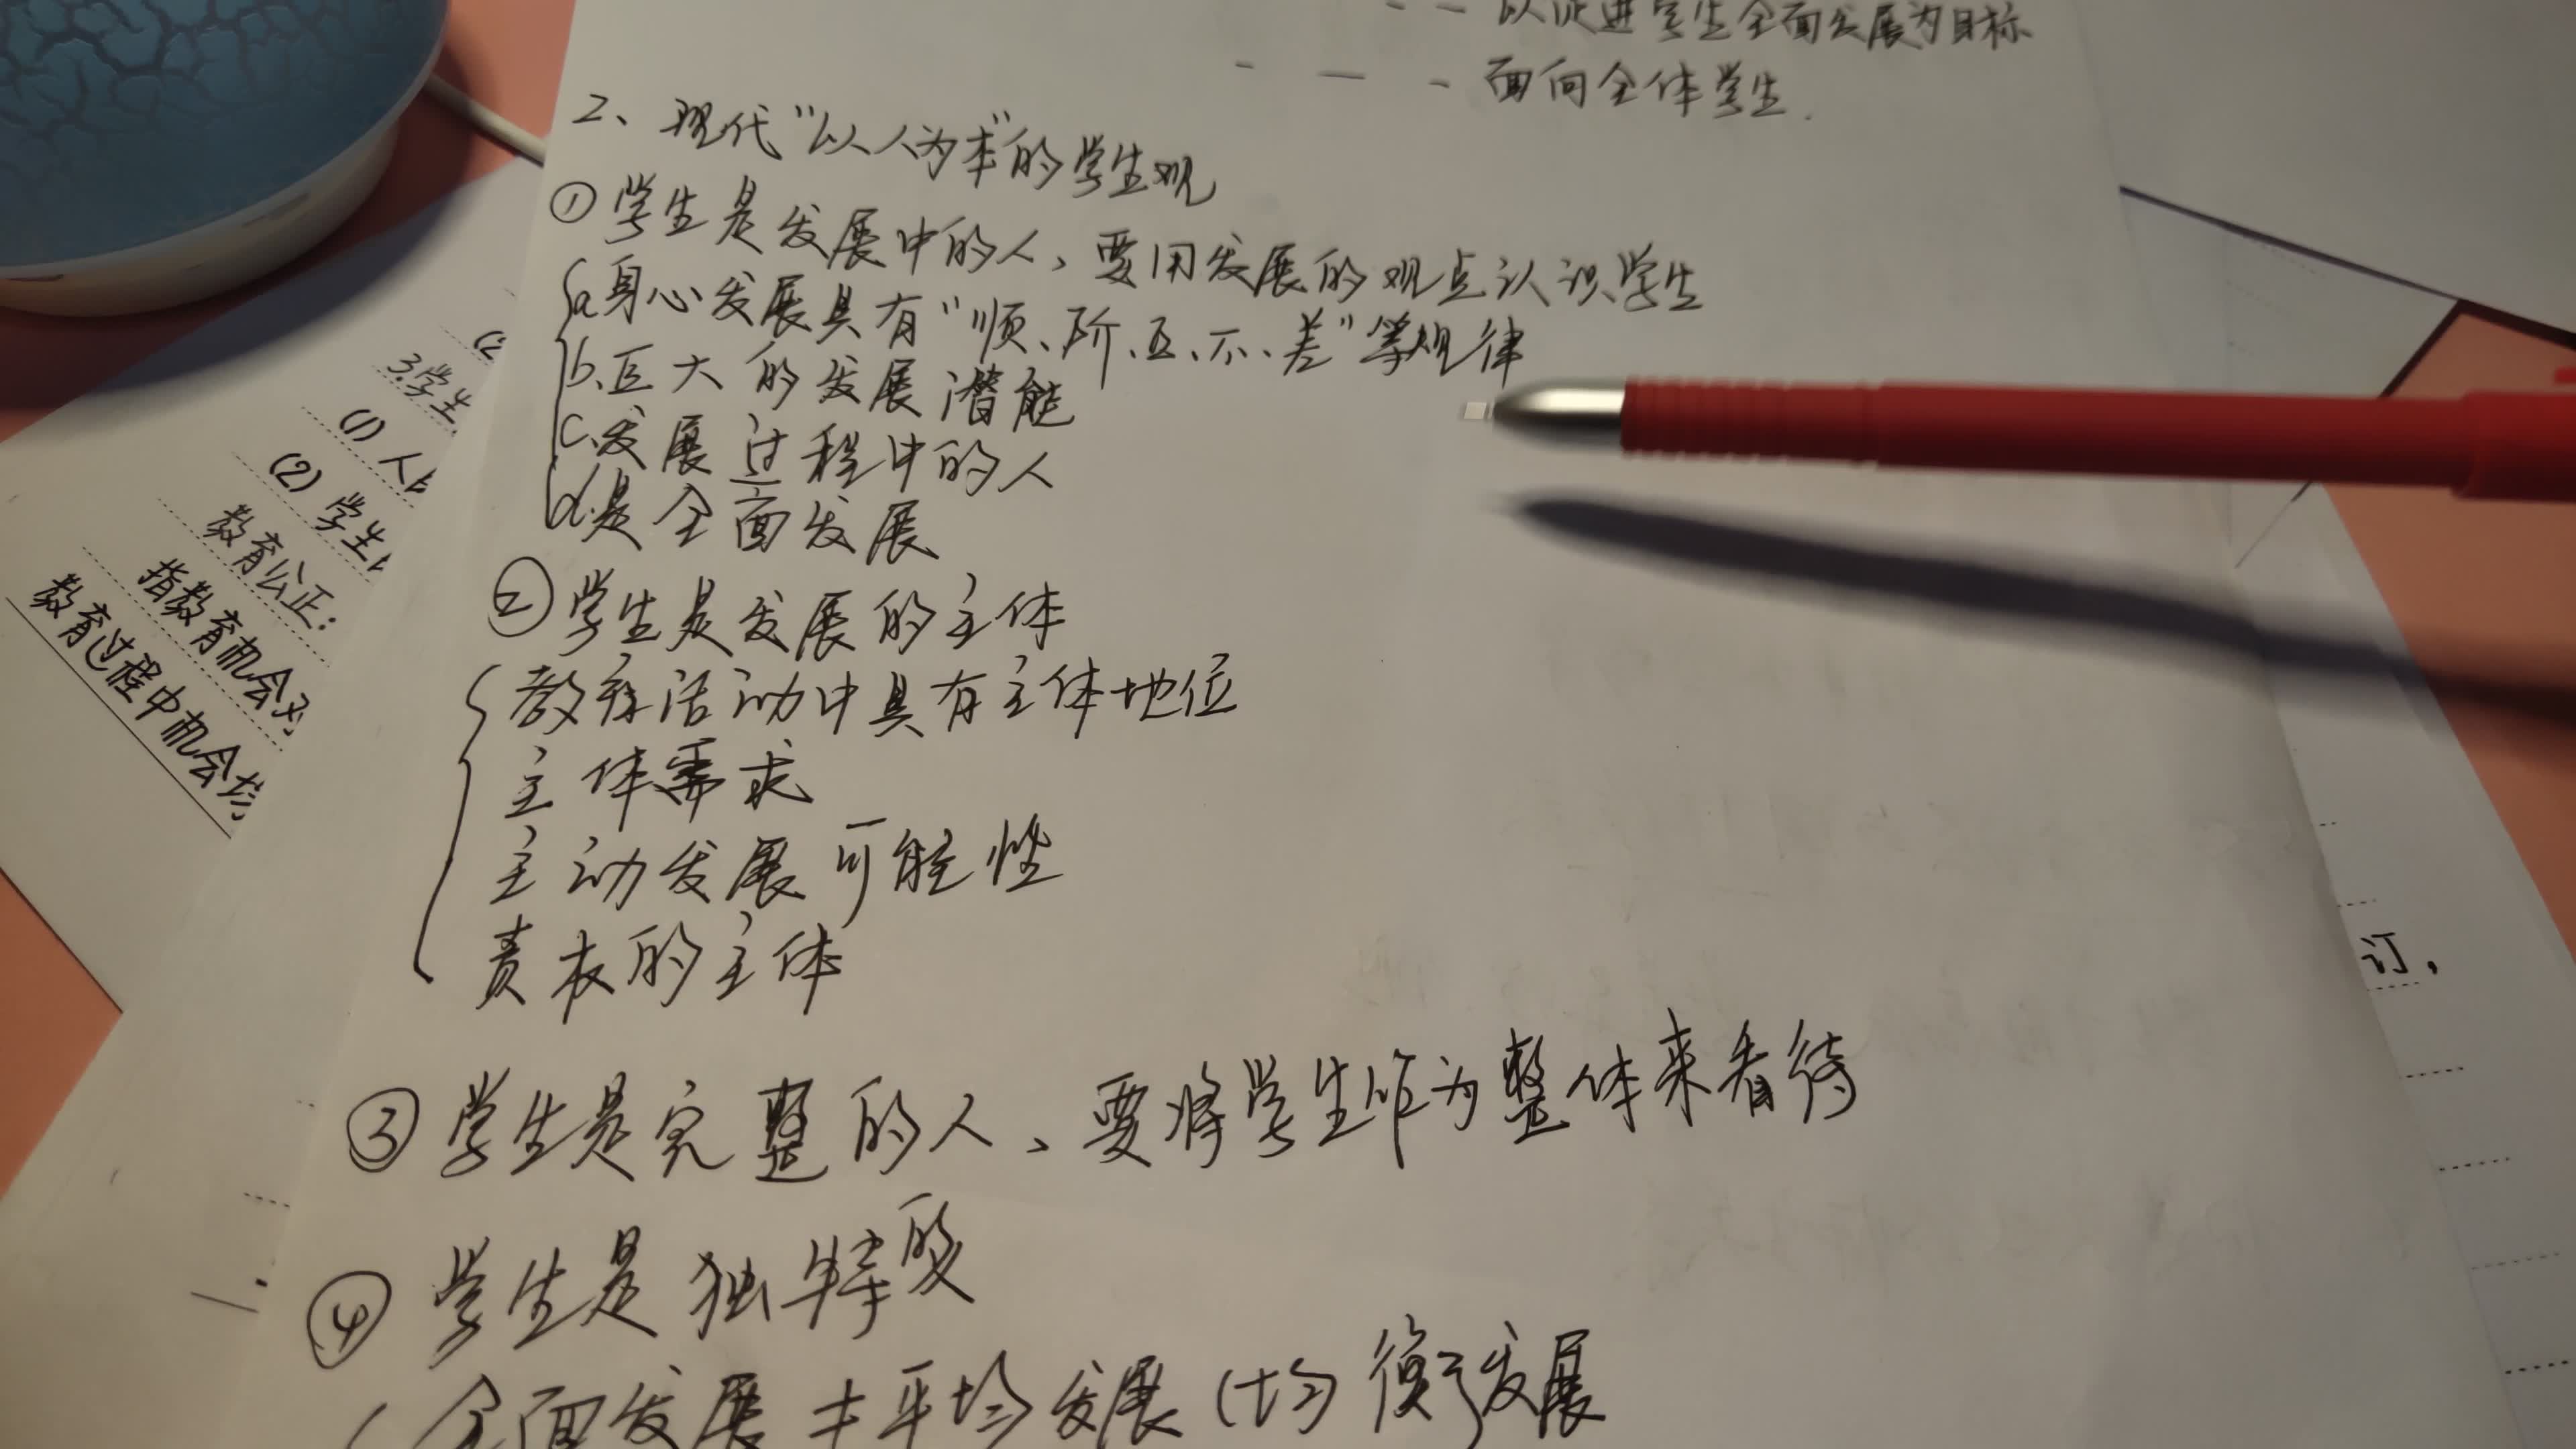 - - 以促进学生全面发展为目标
- — - 面向全体学生.
2、现代“以人为本”的学生观
①学生是发展中的人、要用发展的观点认识学生
a.身心发展具有“顺、阶、互、不、差”等规律
b.巨大的发展潜能
c.发展过程中的人
d.是全面发展
②学生是发展的主体
教育活动中具有主体地位
主体需求
主动发展可能性
责权的主体
③学生是完整的人、要将学生作为整体来看待
④学生是独特的
全面发展≠平均发展(均衡发展
(2
3.学生
(1)人
(2)学生
教育公正:
指教育机会
教育过程中机会均
订,